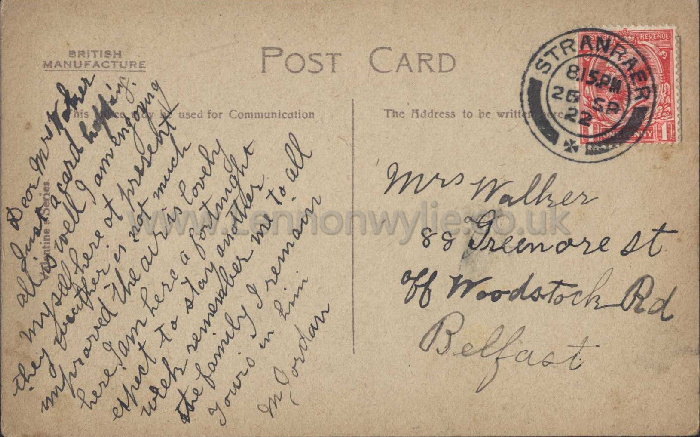 BRITISH
MANUFACTURE
POST CARD
This space may be used for Communication
The Address to be written here
Valentine's Series
STRANRAER
8.15PM
26 SP
22
REVENUE
1 PENNY 1
Mrs Walker
88 Greenore st
Off Woodstock Rd
Belfast
Dear Mrs Walker
Just a card hoping
all is well I am enjoying
myself here at present
they weather is not much
improved the air is lovely
here I am here a fortnight
expect to stay another
week remember me to all
the family I remain
Yours in him
M Jordan
www.lennonwylie.co.uk